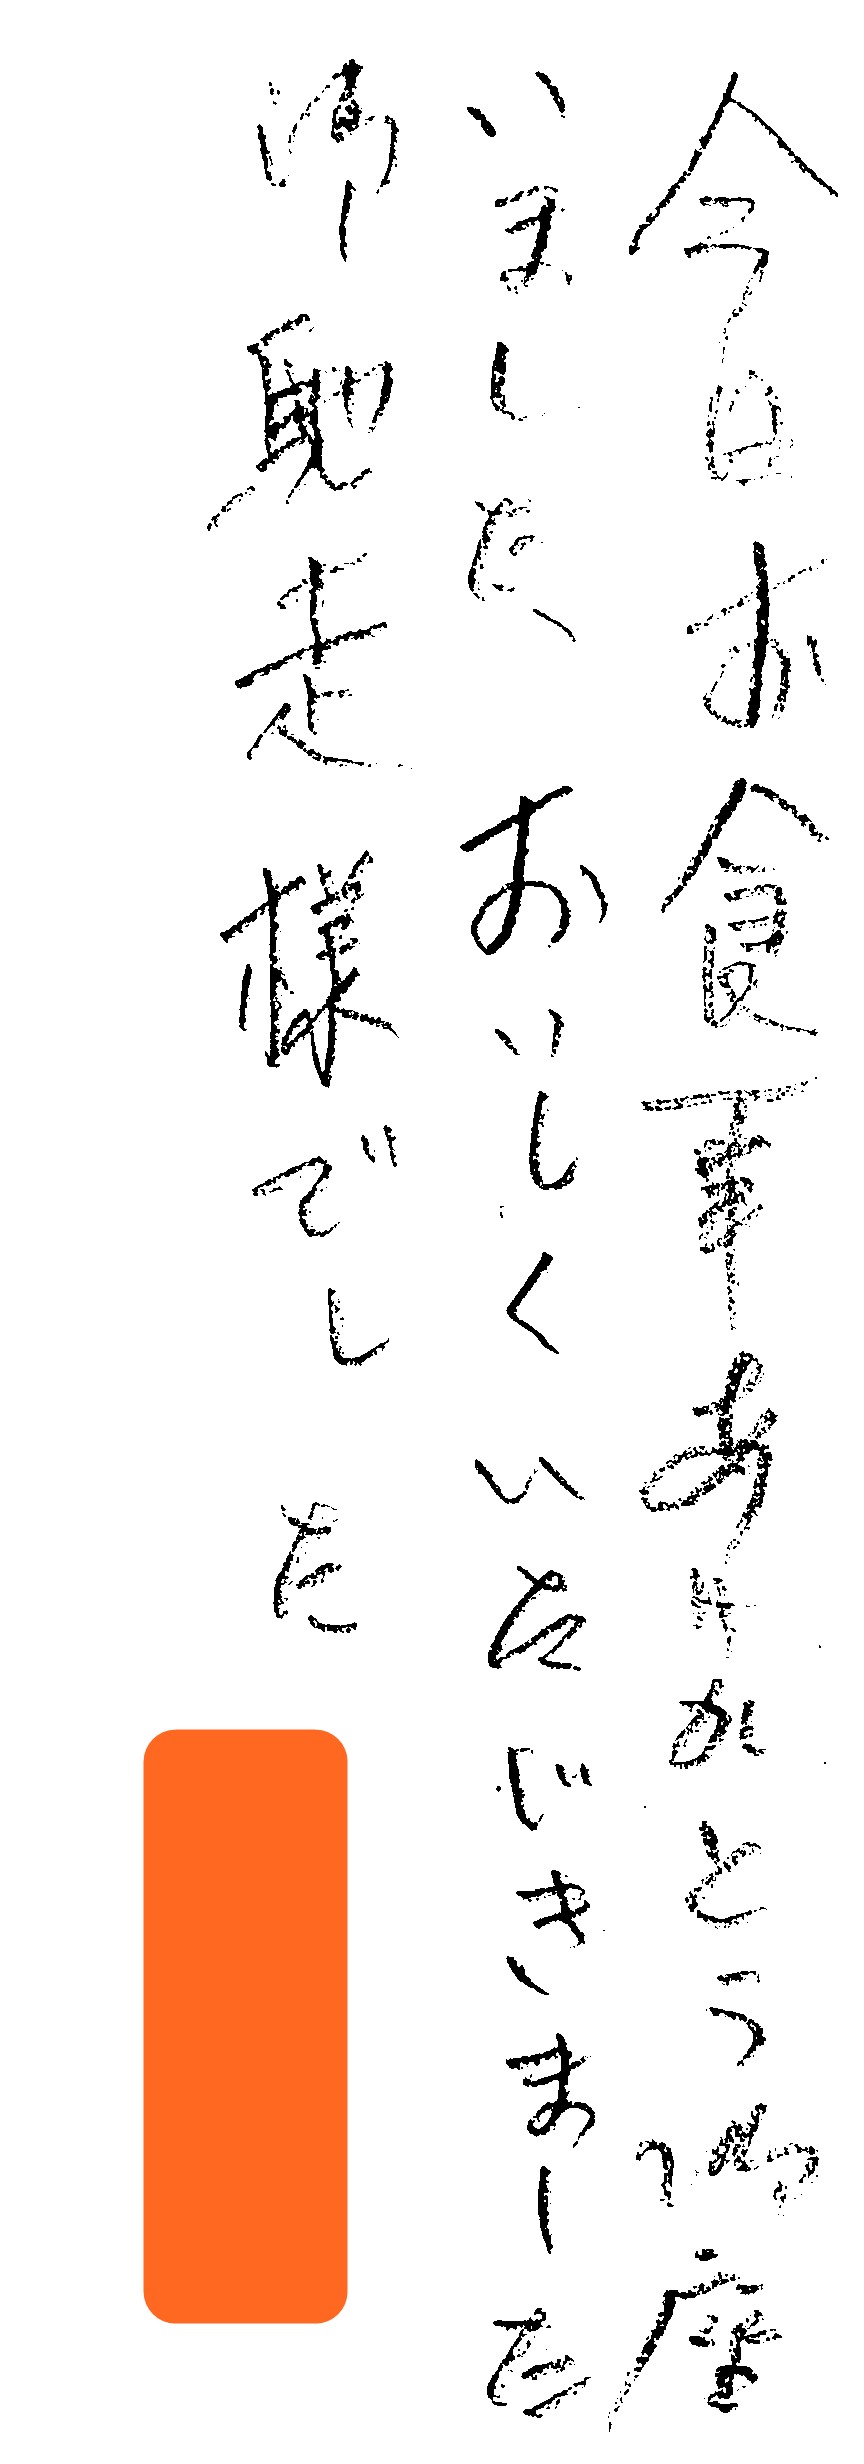 今日お食事ありがとう御座
いました おいしくいただきました
御馳走様でした